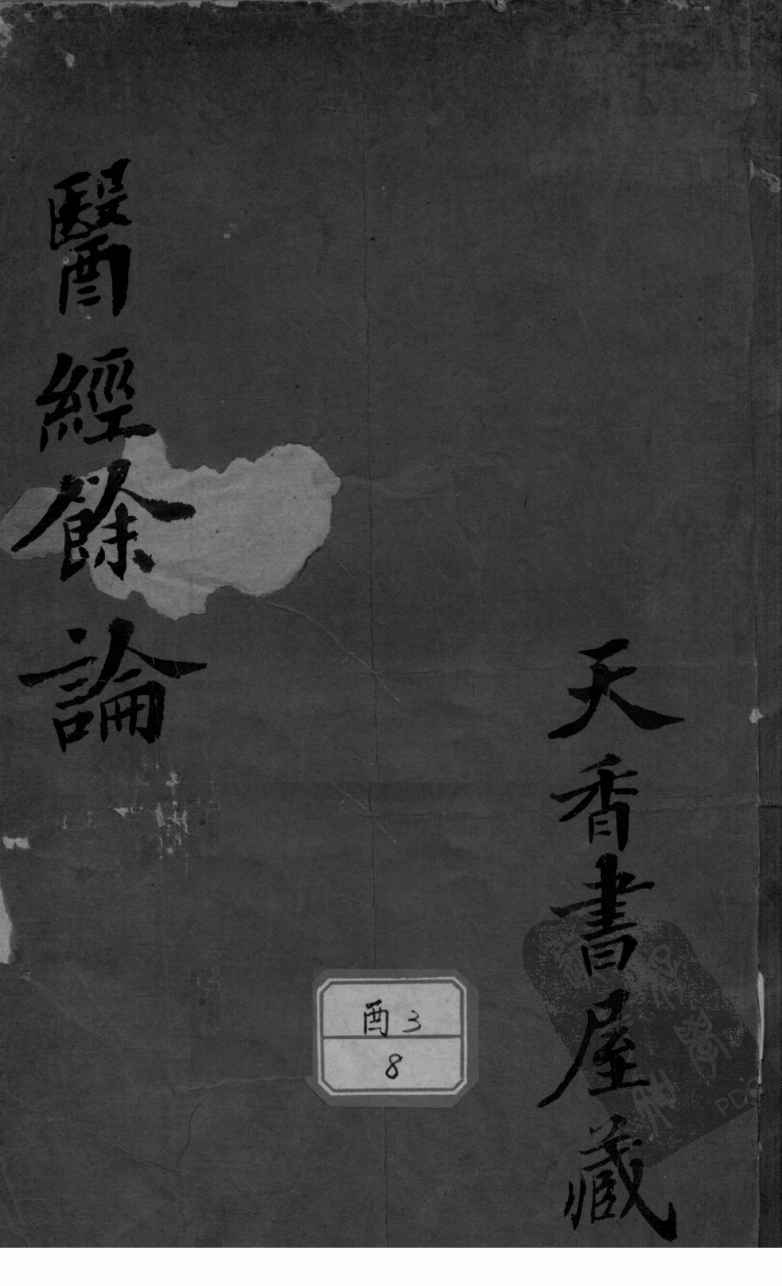 天香書屋藏
醫經餘論
酉3
8